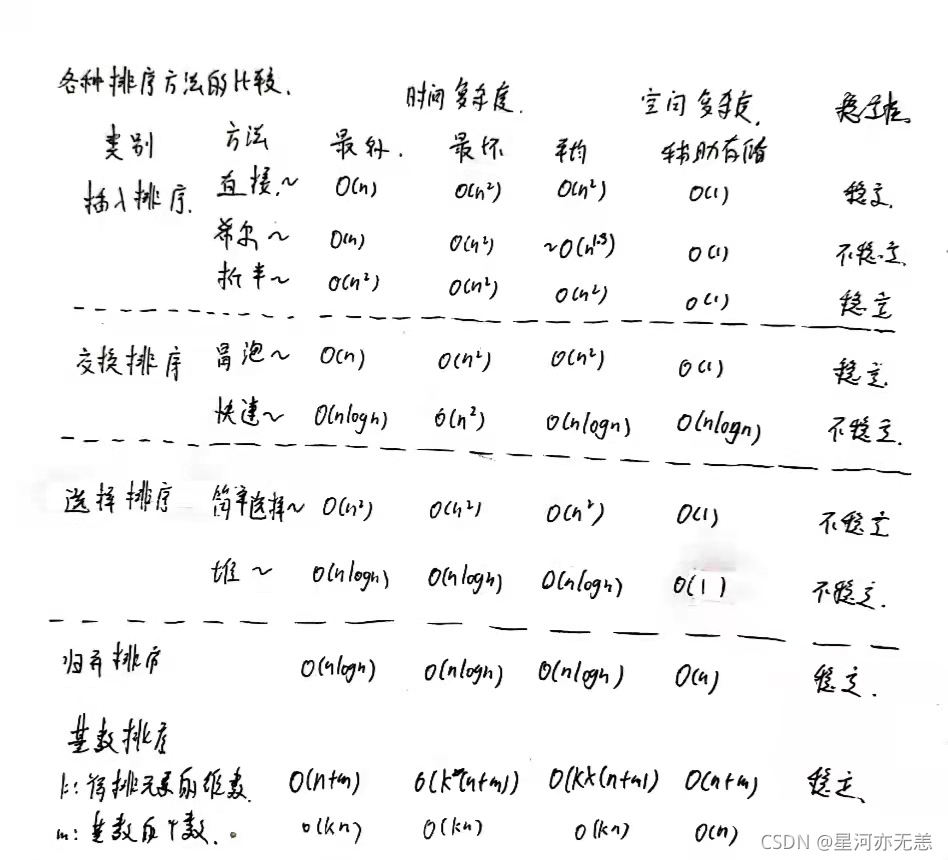 各种排序方法的比较.
时间复杂度. 空间复杂度. 稳定性
类别 方法 最好. 最坏 平均 辅助存储
插入排序. 直接~ O(n) O(n²) O(n²) O(1) 稳定.
希尔~ O(n) O(n²) ~O(n^1.3) O(1) 不稳定.
折半~ O(n²) O(n²) O(n²) O(1) 稳定
交换排序 冒泡~ O(n) O(n²) O(n²) O(1) 稳定.
快速~ O(nlogn) O(n²) O(nlogn) O(nlogn) 不稳定.
选择排序 简单选择~ O(n²) O(n²) O(n²) O(1) 不稳定
堆~ O(nlogn) O(nlogn) O(nlogn) O(1) 不稳定.
归并排序 O(nlogn) O(nlogn) O(nlogn) O(n) 稳定.
基数排序
k: 待排元素的维数. O(n+m) O(k*(n+m)) O(k×(n+m)) O(n+m) 稳定.
m: 基数的个数. O(kn) O(kn) O(kn) O(n)
CSDN @星河亦无恙